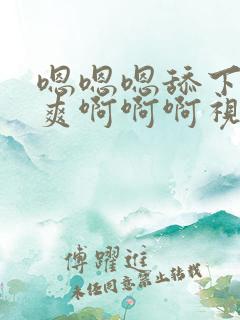 嗯嗯嗯舔下
爽啊啊啊視
傅躍進
未经同意禁止转载